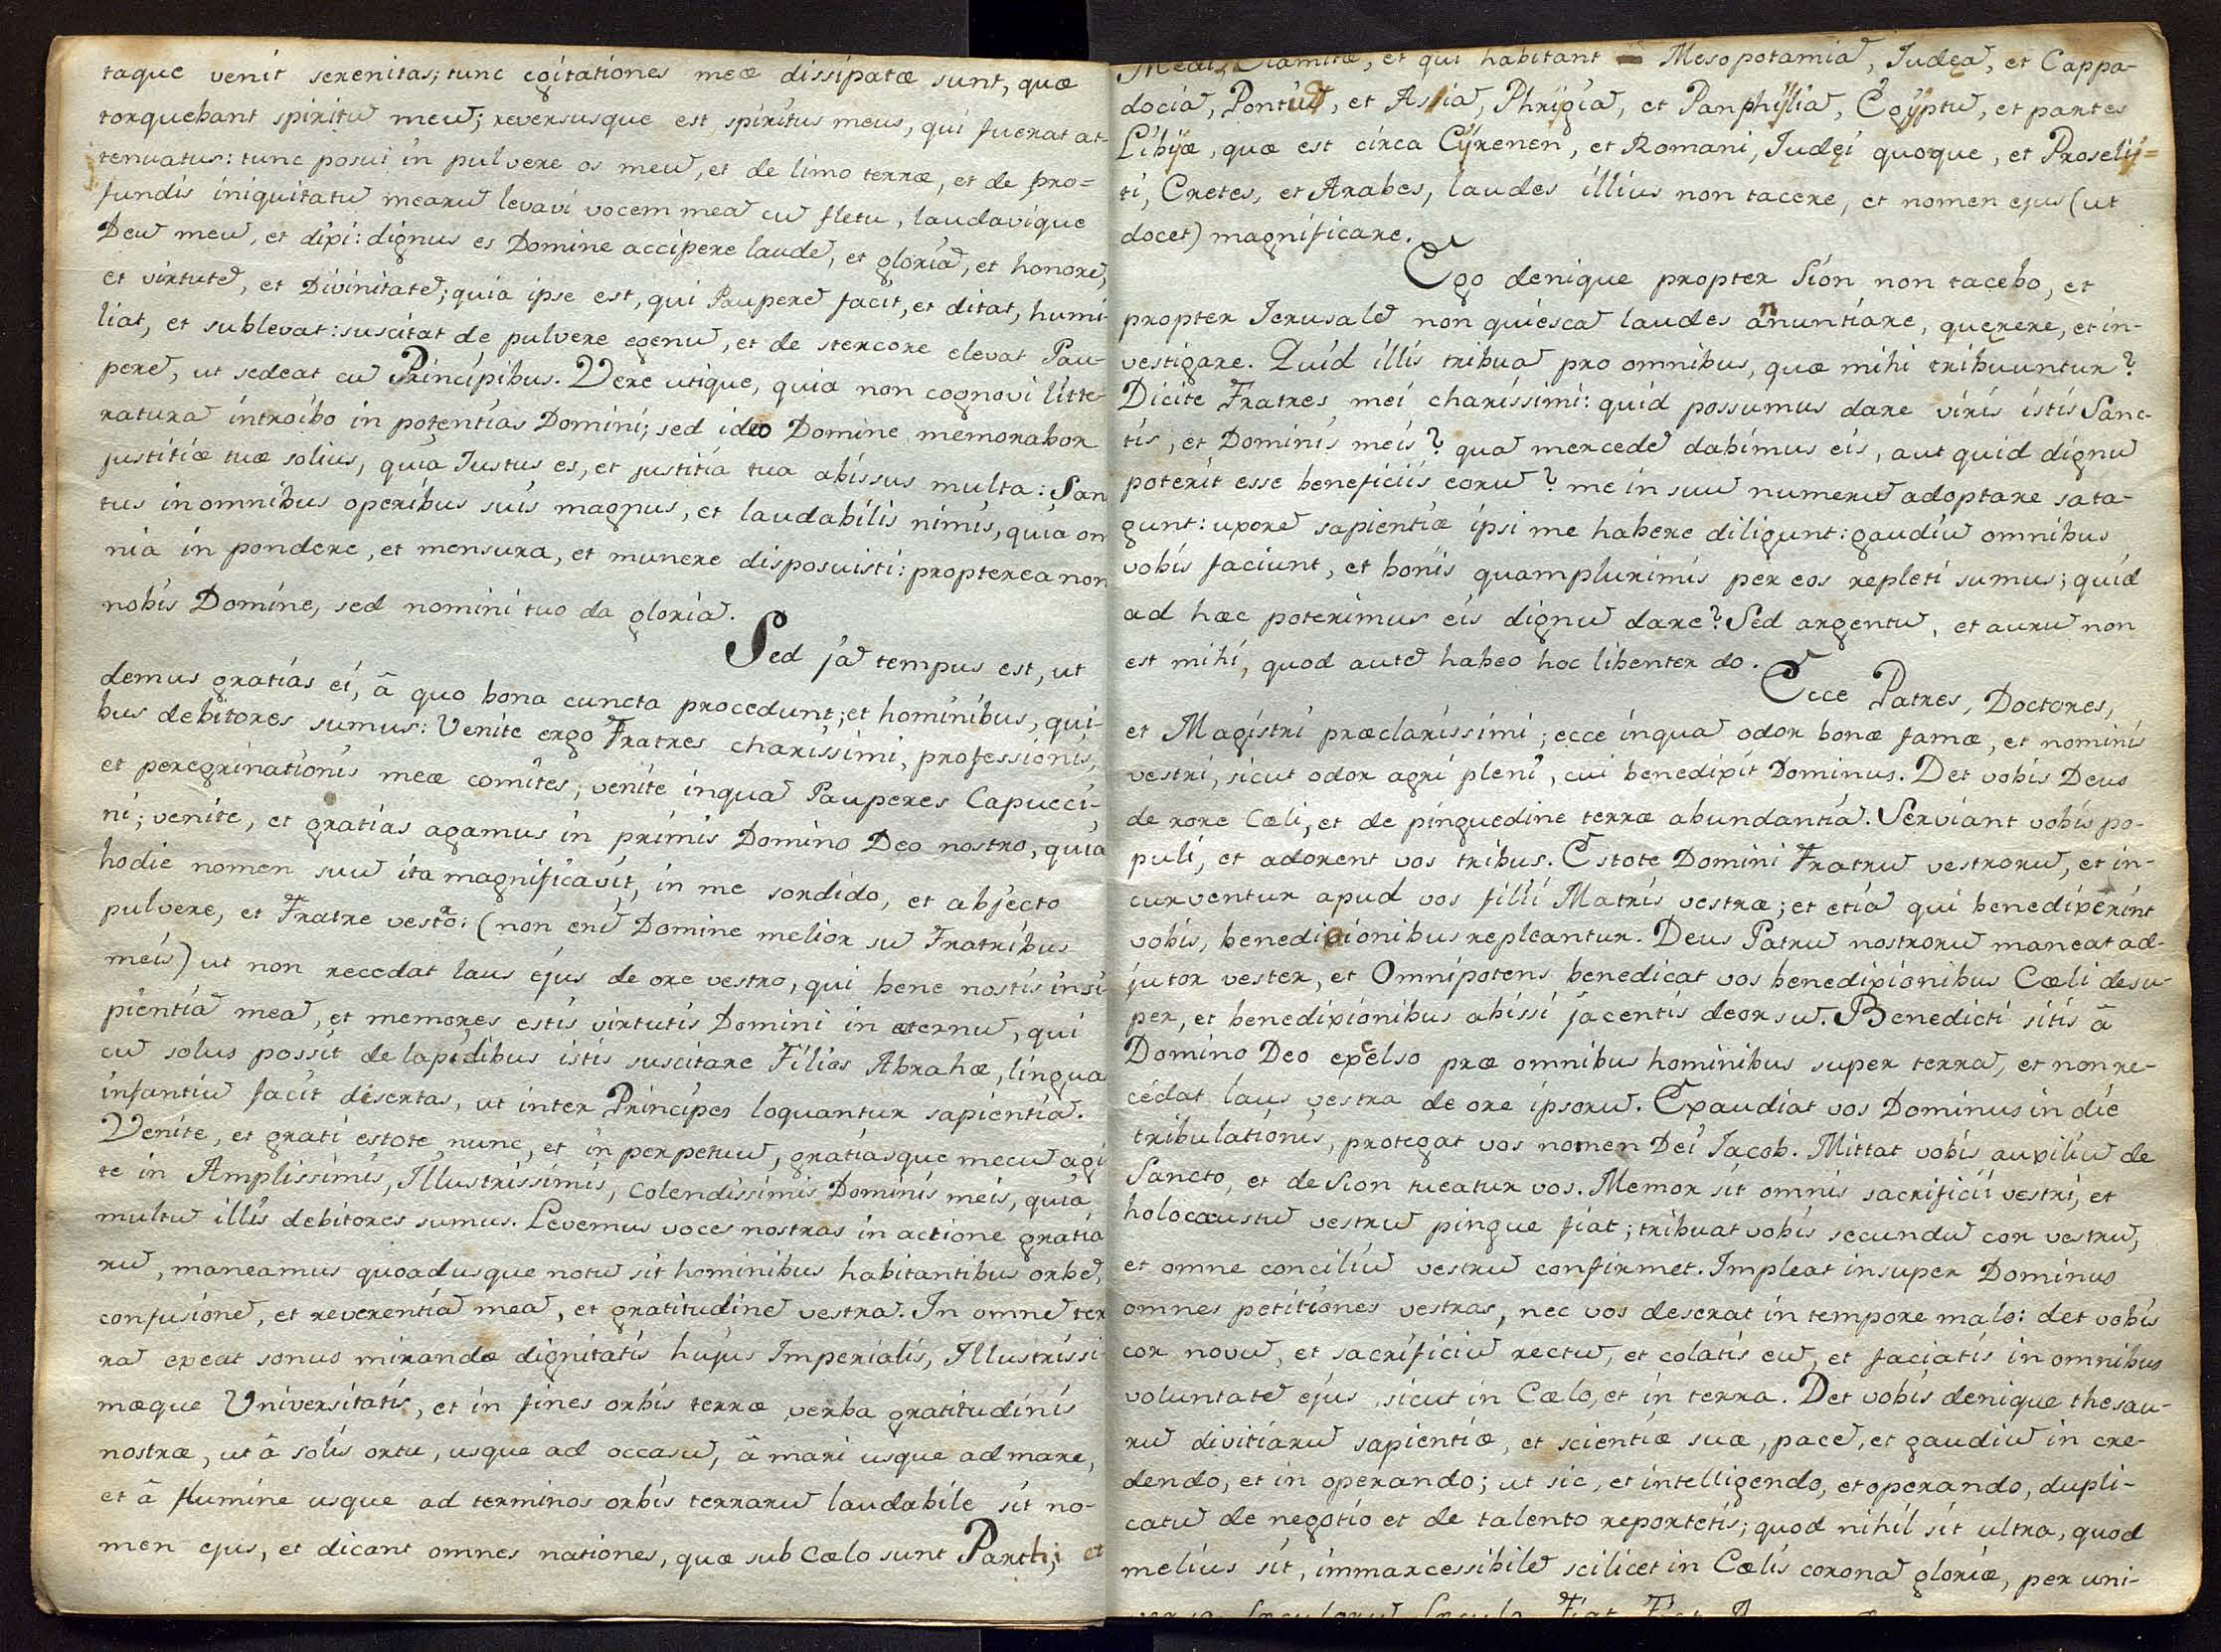 taque venit serenitas; tunc cogitationes meæ dissipatæ sunt, quæ
torquebant spiritũ meũ; reversusque est spiritus meus, qui fuerat at-
tenuatus: tunc posui in pulvere os meũ, et de limo terræ, et de pro=
fundis iniquitatũ mearũ levavi vocem meã cũ fletu, laudavique
Deũ meũ, et dixi: dignus es Domine accipere laudẽ, et gloriã, et honorẽ,
et virtutẽ, et Divinitatẽ; quia ipse est, qui Pauperẽ facit, et ditat, humi-
liat, et sublevat: suscitat de pulvere egenũ, et de stercore elevat Pau-
perẽ, ut sedeat cũ Principibus. Vere utique, quia non cognovi litte-
raturã introibo in potentias Domini; sed ideo Domine memorabor
justitiæ tuæ solius, quia Iustus es, et justitia tua abissus multa: San
tus in omnibus operibus suis magnus, et laudabilis nimis, quia om
nia in pondere, et mensura, et munere disposuisti: propterea non
nobis Domine, sed nomini tuo da gloriã.
Sed jã tempus est, ut
demus gratias ei, â quo bona cuncta procedunt; et hominibus, qui-
bus debitores sumus: Venite ergo Fratres charissimi, professionis,
et peregrinationis meæ comites; venite inquã Pauperes Capucci-
ni; venite, et gratias agamus in primis Domino Deo nostro, quia
hodie nomen suũ ita magnificavit, in me sordido, et abjecto
pulvere, et Fratre vestro: (non enĩ Domine melior sũ Fratribus
meis) ut non recedat laus ejus de ore vestro, qui bene nostis insi
pientiã meã, et memores estis virtutis Domini in æternũ, qui
cũ solus possit de lapidibus istis suscitare Filios Abrahæ, lingua
infantiũ facit disertas, ut inter Principes loquantur sapientiã.
Venite, et grati estote nunc, et in perpetuũ, gratiasque mecũ agi
te in Amplissimis, Illustrissimis, Colendissimis Dominis meis, quia
multũ illis debitores sumus. Levemus voces nostras in actione gratia
rũ, maneamus quoadusque notũ sit hominibus habitantibus orbẽ,
confusionẽ, et reverentiã meã, et gratitudinẽ vestrã. In omnẽ ter
rã exeat sonus mirandæ dignitatis hujus Imperialis, Illustrissi-
mæque Universitatis, et in fines orbis terræ verba gratitudinis
nostræ, ut â solis ortu, usque ad occasũ, â mari usque ad mare,
et â flumine usque ad terminos orbis terrarũ laudabile sit no-
men ejus, et dicant omnes nationes, quæ sub Cælo sunt Parthi, et
Medi, Elamitæ, et qui habitant Mesopotamiã, Iudęã, et Cappa-
dociã, Pontũ, et Assiã, Phrigiã, et Panphÿliã, Egÿptũ, et partes
Libÿæ, quæ est circa Cÿrenen, et Romani, Iudęi quoque, et Proselÿ=
ti, Cretes, et Arabes, laudes illius non tacere, et nomen ejus (ut
docet) magnificare.
Ego denique propter Sion non tacebo, et
propter Ierusalẽ non quiescã laudes annuntiare, quęrere, et in-
vestigare. Quid illis tribuã pro omnibus, quæ mihi tribuuntur?
Dicite Fratres mei charissimi: quid possumus dare viris istis Sanc-
tis, et Dominis meis? quã mercedẽ dabimus eis, aut quid dignũ
poterit esse beneficiis eorũ? me in suũ numerũ adoptare sata-
gunt: uxorẽ sapientiæ ipsi me habere diligunt: gaudiũ omnibus
vobis faciunt, et bonis quamplurimis per eos repleti sumus; quid
ad hæc poterimus eis dignũ dare? Sed argentũ, et aurũ non
est mihi, quod autẽ habeo hoc libenter do.
Ecce Patres, Doctores,
et Magistri præclarissimi; ecce inquã odor bonæ famæ, et nominis
vestri, sicut odor agri pleni, cui benedixit Dominus. Det vobis Deus
de rore Cæli, et de pinguedine terræ abundantiã. Serviant vobis po-
puli, et adorent vos tribus. Estote Domini Fratrũ vestrorũ, et in-
curventur apud vos filii Matris vestræ; et etiã qui benedixerint
vobis, benedixionibus repleantur. Deus Patrũ nostrorũ maneat ad-
jutor vester, et Omnipotens benedicat vos benedixionibus Cæli desu-
per, et benedixionibus abissi jacentis deorsũ. Benedicti sitis â
Domino Deo excelso præ omnibus hominibus super terrã, et non re-
cedat laus vestra de ore ipsorũ. Exaudiat vos Dominus in die
tribulationis, protegat vos nomen Dei Jacob. Mittat vobis auxiliũ de
Sancto, et de Sion tueatur vos. Memor sit omnis sacrificii vestri, et
holocaustũ vestrũ pingue fiat; tribuat vobis secundũ cor vestrũ,
et omne conciliũ vestrũ confirmet. Impleat insuper Dominus
omnes petitiones vestras, nec vos deserat in tempore malo: det vobis
cor novũ, et sacrificiũ rectũ, et colatis eũ, et faciatis in omnibus
voluntatẽ ejus, sicut in Cælo, et in terra. Det vobis denique thesau-
rũ divitiarũ sapientiæ, et scientiæ suæ, pacẽ, et gaudiũ in cre-
dendo, et in operando; ut sic, et intelligendo, et operando, dupli-
catũ de negotio et de talento reportetis; quod nihil sit ultra, quod
melius sit, immarcessibilẽ scilicet in Cælis coronã gloriæ, per uni-